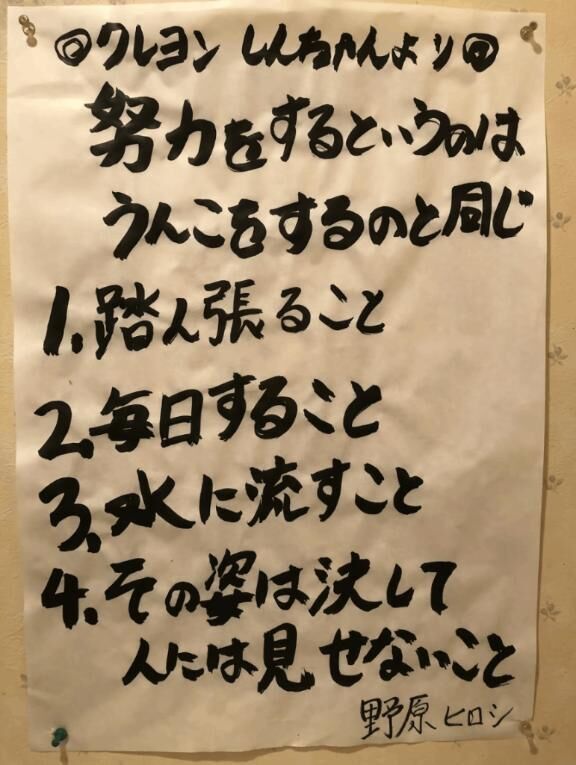 ◎クレヨン しんちゃんより◎
努力をするというのは
うんこをするのと同じ
1.踏ん張ること
2.毎日すること
3.水に流すこと
4.その姿は決して
人には見せないこと
野原ヒロシ